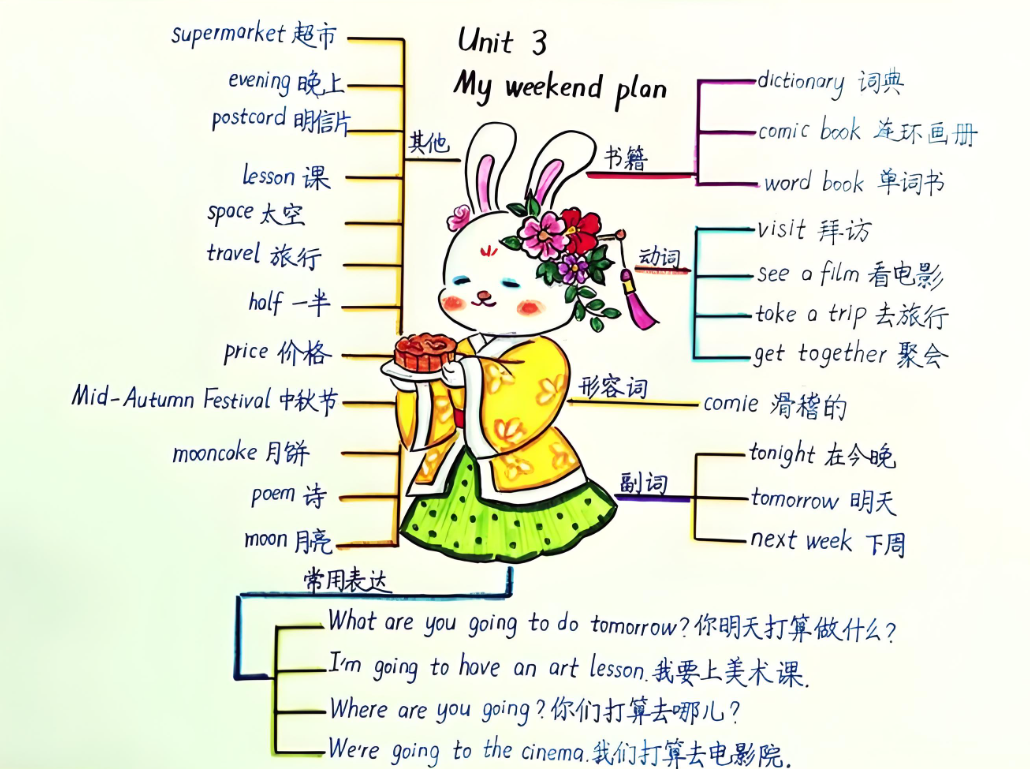 Unit 3
My weekend plan
其他
supermarket 超市
evening 晚上
postcard 明信片
lesson 课
space 太空
travel 旅行
half 一半
price 价格
Mid-Autumn Festival 中秋节
mooncake 月饼
poem 诗
moon 月亮
书籍
dictionary 词典
comic book 连环画册
word book 单词书
动词
visit 拜访
see a film 看电影
take a trip 去旅行
get together 聚会
形容词
comie 滑稽的
副词
tonight 在今晚
tomorrow 明天
next week 下周
常用表达
What are you going to do tomorrow? 你明天打算做什么?
I'm going to have an art lesson. 我要上美术课.
Where are you going? 你们打算去哪儿?
We're going to the cinema. 我们打算去电影院.